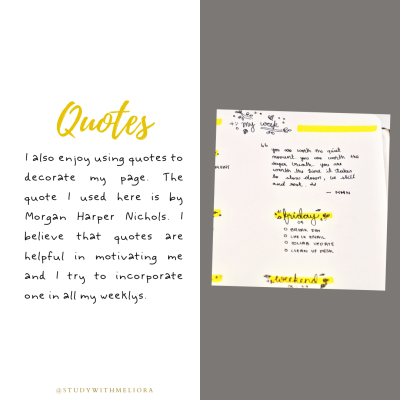 Quotes
I also enjoy using quotes to
decorate my page. The
quote I used here is by
Morgan Harper Nichols. I
believe that quotes are
helpful in motivating me
and I try to incorporate
one in all my weeklys.
@STUDYWITHMELIORA
my week
you are worth the quiet
moment. you are worth the
deeper breath. you are
worth the time it takes
to slow down, be still
and rest.
- MHN
friday
09
BREAK DAY
CHECK EMAIL
CLEAN UP DESK
weekend